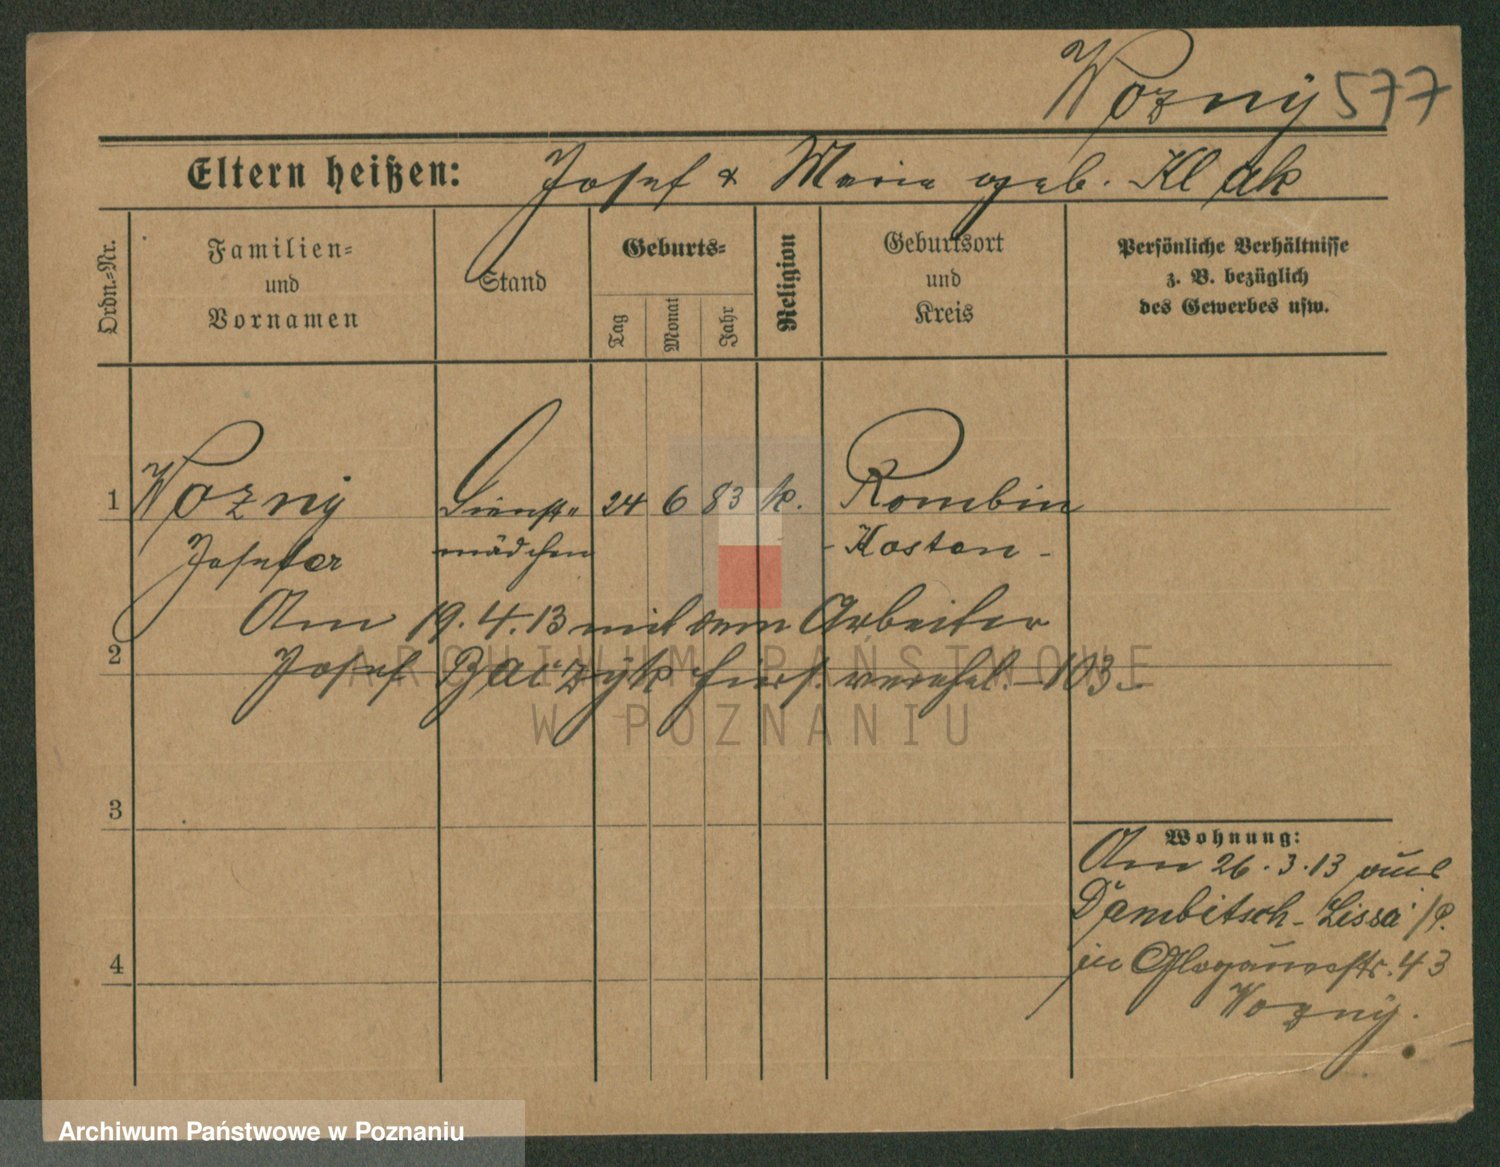 Wozny 577
Eltern heißen: Josef & Marie geb. Klak
Ordn.-Nr.
Familien-
und
Vornamen
Stand
Geburts-
Tag
Monat
Jahr
Religion
Geburtsort
und
Kreis
Persönliche Verhältnisse
z. B. bezüglich
des Gewerbes usw.
1 Wozny Dienst- 24 6 83 k. Rombin
Josefa mädchen - Kosten -
Am 19.4.13 mit dem Arbeiter
2 Josef hier verehel. - 103 -
3
4
Wohnung:
Am 26.3.13 aus
Dambitsch - Lissa i/P.
in Glogauerstr. 43
Wozny.
ARCHIWUM PAŃSTWOWE
W POZNANIU
Archiwum Państwowe w Poznaniu